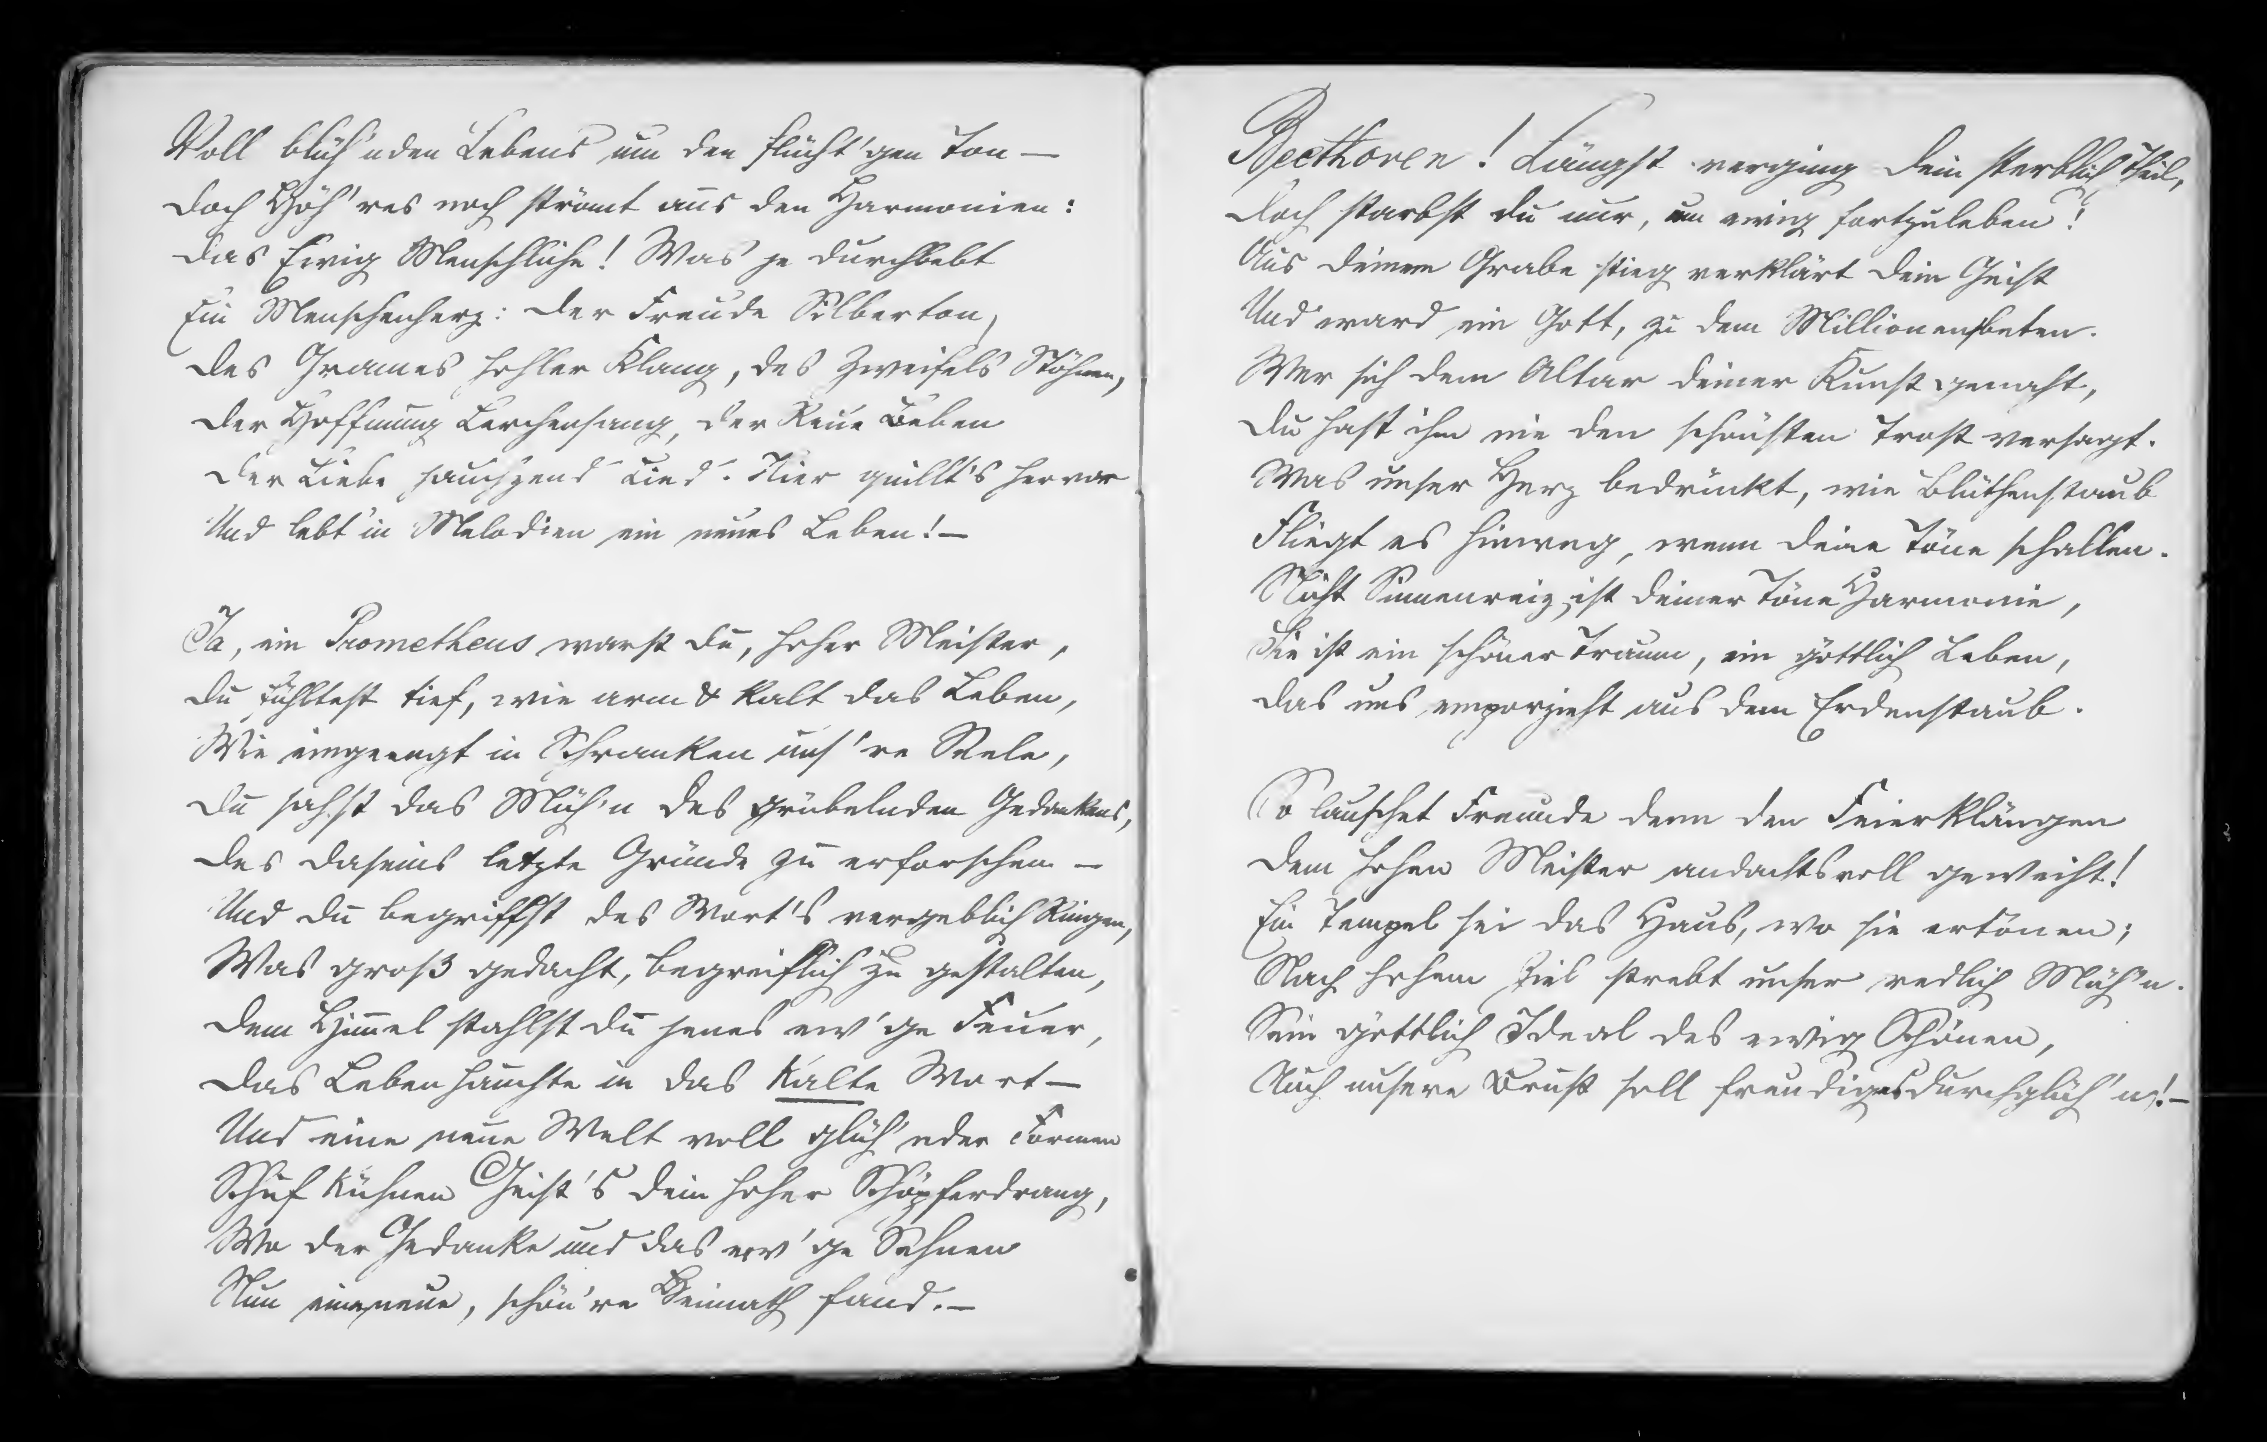 Voll blüh'nden Lebens um den flücht'gen Ton —
Doch Höh'res noch strömt aus den Harmonien:
Das Ewig Menschliche! Was je durchbebt
Ein Menschenherz: Der Freude Silberton,
Des Grames hohler Klang, des Zweifels Stöhnen,
Der Hoffnung Lerchensang, der Reue Beben
Der Liebe jauchzend Lied. Hier quillt's hervor
Und lebt in Melodien ein neues Leben! —
Ja, ein Prometheus warst du, hoher Meister,
Du fühltest tief, wie arm & kalt das Leben,
Wie eingeengt in Schranken uns're Seele,
Du sahst das Müh'n des grübelnden Gedankens,
Des Daseins letzte Gründe zu erforschen —
Und du begriffst des Wort's vergeblich Ringen,
Was groß gedacht, begreiflich zu gestalten,
Dem Himmel stahlst du jenes ew'ge Feuer,
Das Leben hauchte in das kalte Wort —
Und eine neue Welt voll glüh'nder Formen
Schuf kühnen Geist's dein hoher Schöpferdrang,
Wo der Gedanke und das ew'ge Sehnen
Nun eine neue, schön're Heimath fand. —
Beethoven! Längst verging dein sterblich Theil,
Doch starbst du nur, um ewig fortzuleben!
Aus deinem Grabe stieg verklärt dein Geist
Und ward ein Gott, zu dem Millionen beten.
Wer sich dem Altar deiner Kunst genaht,
Du hast ihm nie den schönsten Trost versagt.
Was unser Herz bedrückt, wie Blüthenstaub
Fliegt es hinweg, wenn deine Töne schallen.
Nicht Sinnenreiz ist deiner Töne Harmonie,
Sie ist ein schöner Traum, ein göttlich Leben,
Das uns emporzieht aus dem Erdenstaub.
So lauschet Freunde denn den Feierklängen
Dem hohen Meister andachtsvoll geweiht!
Ein Tempel sei das Haus, wo sie ertönen;
Nach hohem Ziel strebt unser redlich Müh'n.
Sein göttlich Ideal des ewig Schönen,
Auch unsere Brust soll freudig es durchglüh'n! —